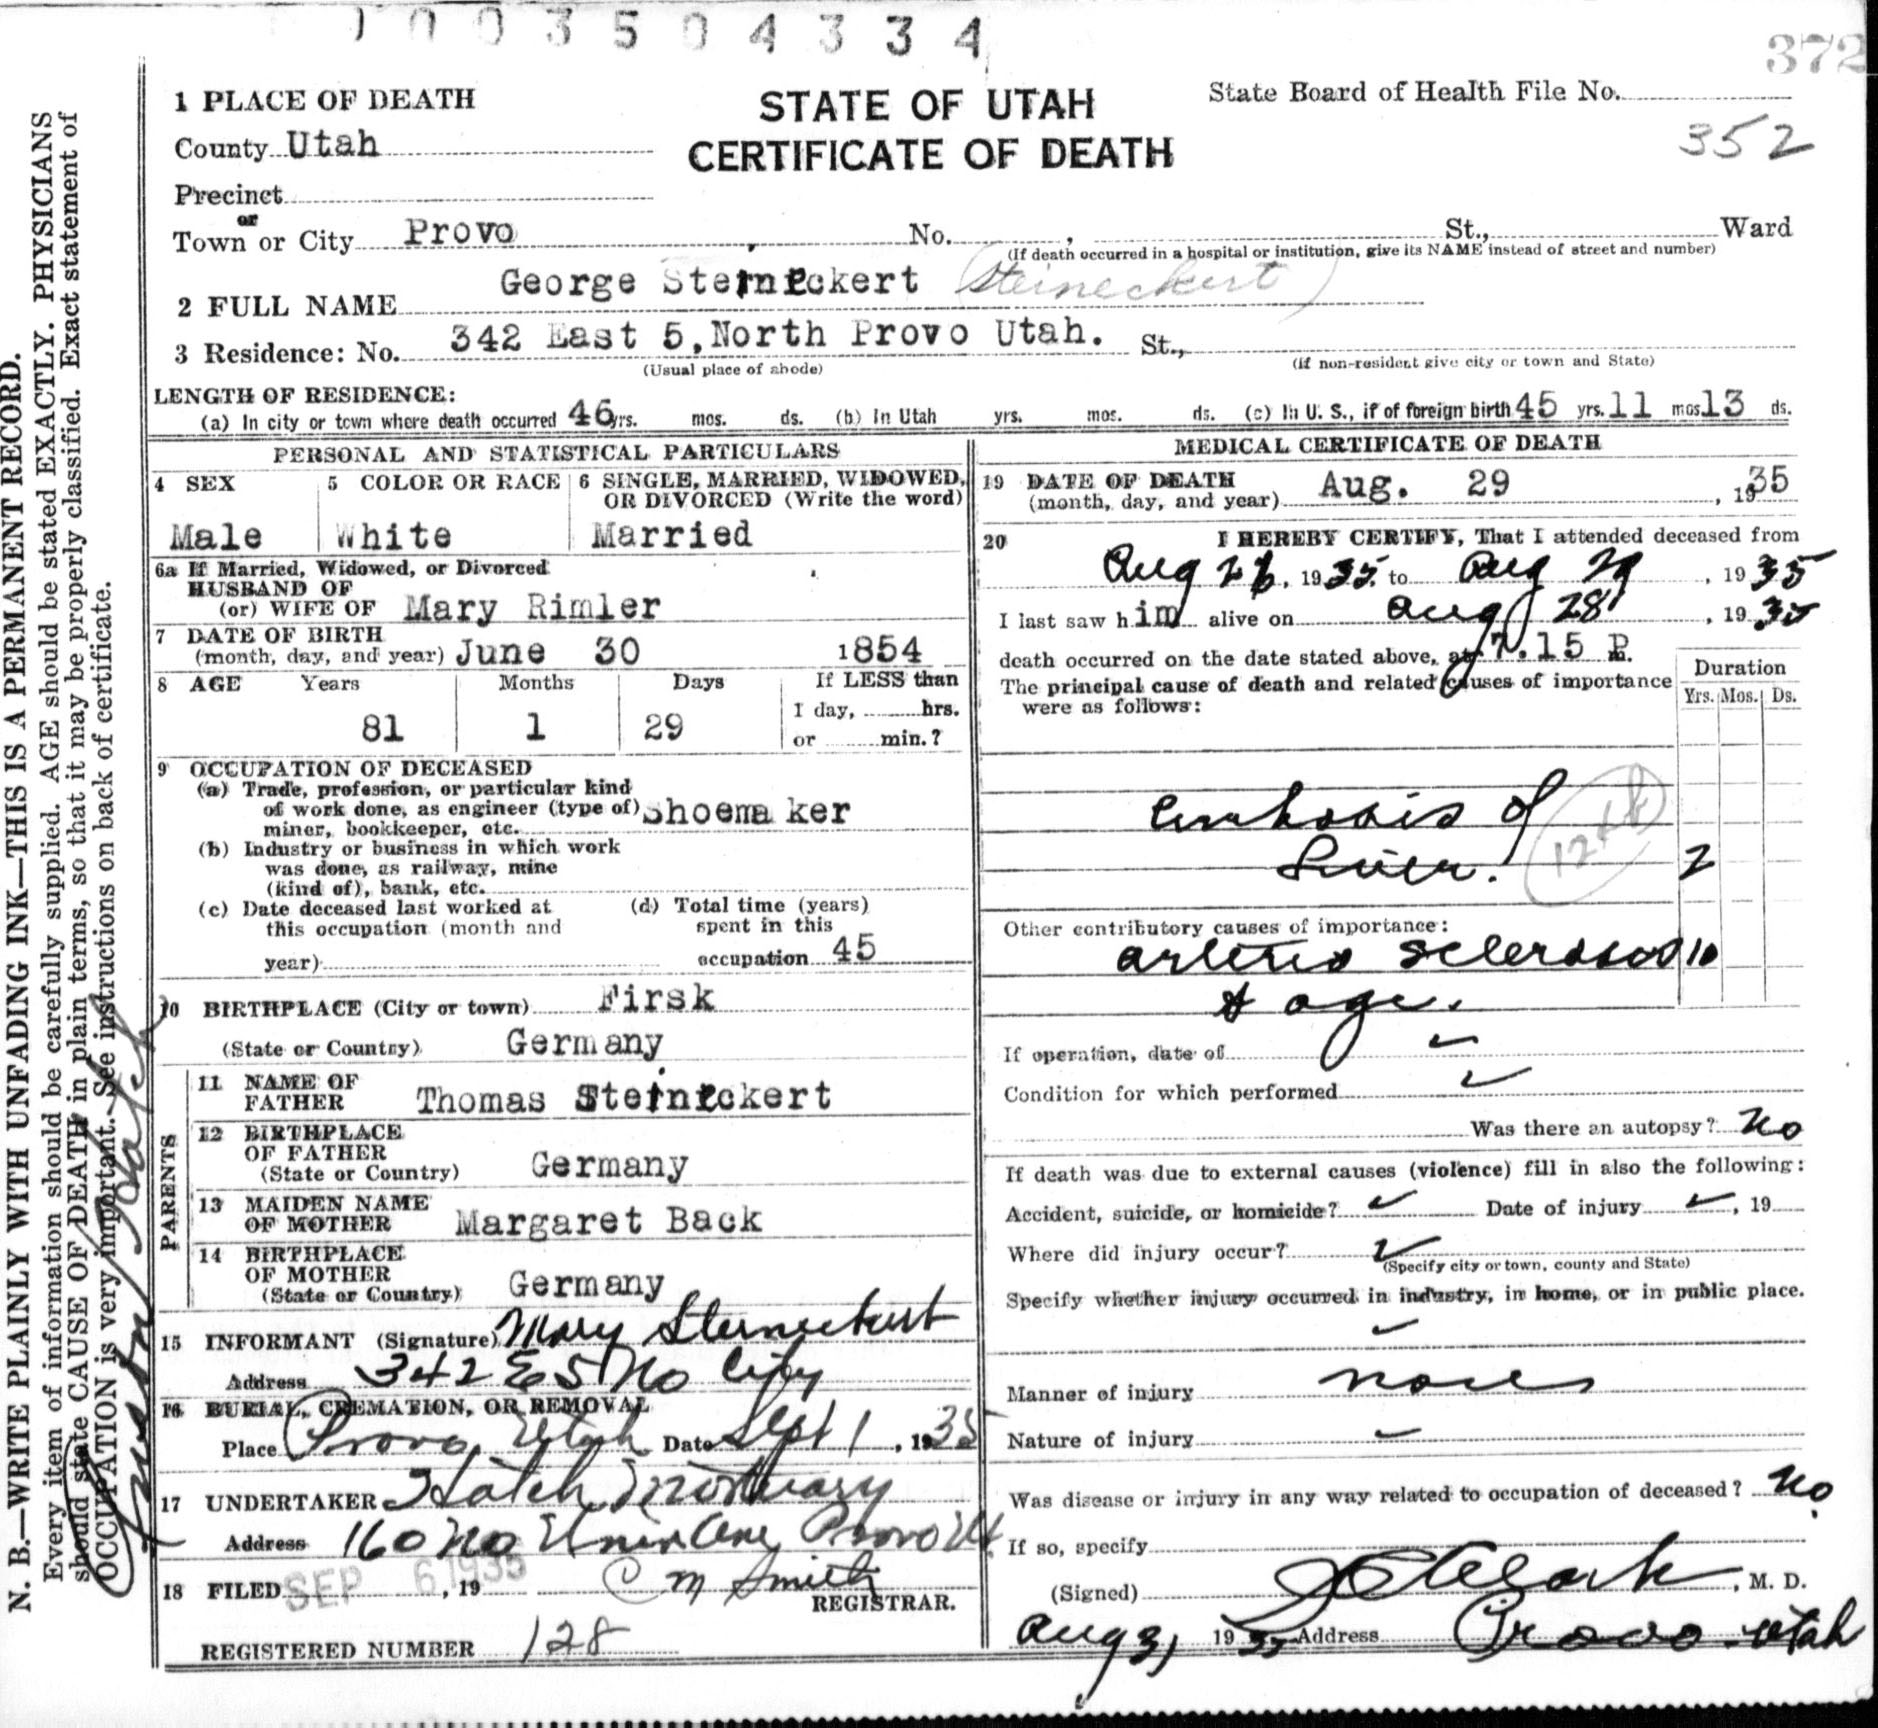 1 0 0 3 5 0 4 3 3 4
372
1 PLACE OF DEATH
STATE OF UTAH
State Board of Health File No.
352
County Utah
CERTIFICATE OF DEATH
Precinct
or
Town or City Provo No. , St., Ward
(If death occurred in a hospital or institution, give its NAME instead of street and number)
2 FULL NAME George Steineckert (Steineckert)
3 Residence: No. 342 East 5, North Provo Utah. St.,
(Usual place of abode) (If non-resident give city or town and State)
LENGTH OF RESIDENCE:
(a) In city or town where death occurred 46 yrs. mos. ds. (b) In Utah yrs. mos. ds. (c) In U. S., if of foreign birth 45 yrs. 11 mos 13 ds.
PERSONAL AND STATISTICAL PARTICULARS
4 SEX 5 COLOR OR RACE 6 SINGLE, MARRIED, WIDOWED,
OR DIVORCED (Write the word)
Male White Married
6a If Married, Widowed, or Divorced
HUSBAND OF
(or) WIFE OF Mary Rimler
7 DATE OF BIRTH
(month, day, and year) June 30 1854
8 AGE Years Months Days If LESS than
1 day, hrs.
81 1 29
or min.?
9 OCCUPATION OF DECEASED
(a) Trade, profession, or particular kind
of work done, as engineer (type of) Shoema ker
miner, bookkeeper, etc.
(b) Industry or business in which work
was done, as railway, mine
(kind of), bank, etc.
(c) Date deceased last worked at
this occupation (month and
year)
(d) Total time (years)
spent in this
occupation 45
10 BIRTHPLACE (City or town) Firsk
(State or Country) Germany
PARENTS
11 NAME OF
FATHER Thomas Steineckert
12 BIRTHPLACE
OF FATHER
(State or Country) Germany
13 MAIDEN NAME
OF MOTHER Margaret Back
14 BIRTHPLACE
OF MOTHER
(State or Country) Germany
15 INFORMANT (Signature) Mary Steineckert
Address 342 E 5 No City
16 BURIAL, CREMATION, OR REMOVAL
Place Provo, Utah Date Sept 1, 1935
17 UNDERTAKER Hatch Mortuary
Address 160 No Univ Ave Provo Ut
18 FILED SEP 6 1935, 19 C M Smith
REGISTRAR.
REGISTERED NUMBER 128
MEDICAL CERTIFICATE OF DEATH
19 DATE OF DEATH
(month, day, and year) Aug. 29, 1935
20 I HEREBY CERTIFY, That I attended deceased from
Aug 26, 1935 to Aug 29, 1935
I last saw him alive on Aug 28, 1935
death occurred on the date stated above, at 7.15 P. m.
The principal cause of death and related causes of importance
were as follows:
Duration
Yrs. Mos. Ds.
Cirrhosis of
Liver. 2
Other contributory causes of importance:
Arterio Sclerosis 10
& age.
If operation, date of ✓
Condition for which performed ✓
Was there an autopsy? No
If death was due to external causes (violence) fill in also the following:
Accident, suicide, or homicide? ✓ Date of injury ✓, 19
Where did injury occur? ✓
(Specify city or town, county and State)
Specify whether injury occurred in industry, in home, or in public place.
✓
Manner of injury
Nature of injury ✓
Was disease or injury in any way related to occupation of deceased? No
If so, specify
(Signed) Clark, M. D.
Aug 31 1935 Address Provo Utah
N. B.—WRITE PLAINLY WITH UNFADING INK—THIS IS A PERMANENT RECORD.
Every item of information should be carefully supplied. AGE should be stated EXACTLY. PHYSICIANS
should state CAUSE OF DEATH in plain terms, so that it may be properly classified. Exact statement of
OCCUPATION is very important. See instructions on back of certificate.
Hatch